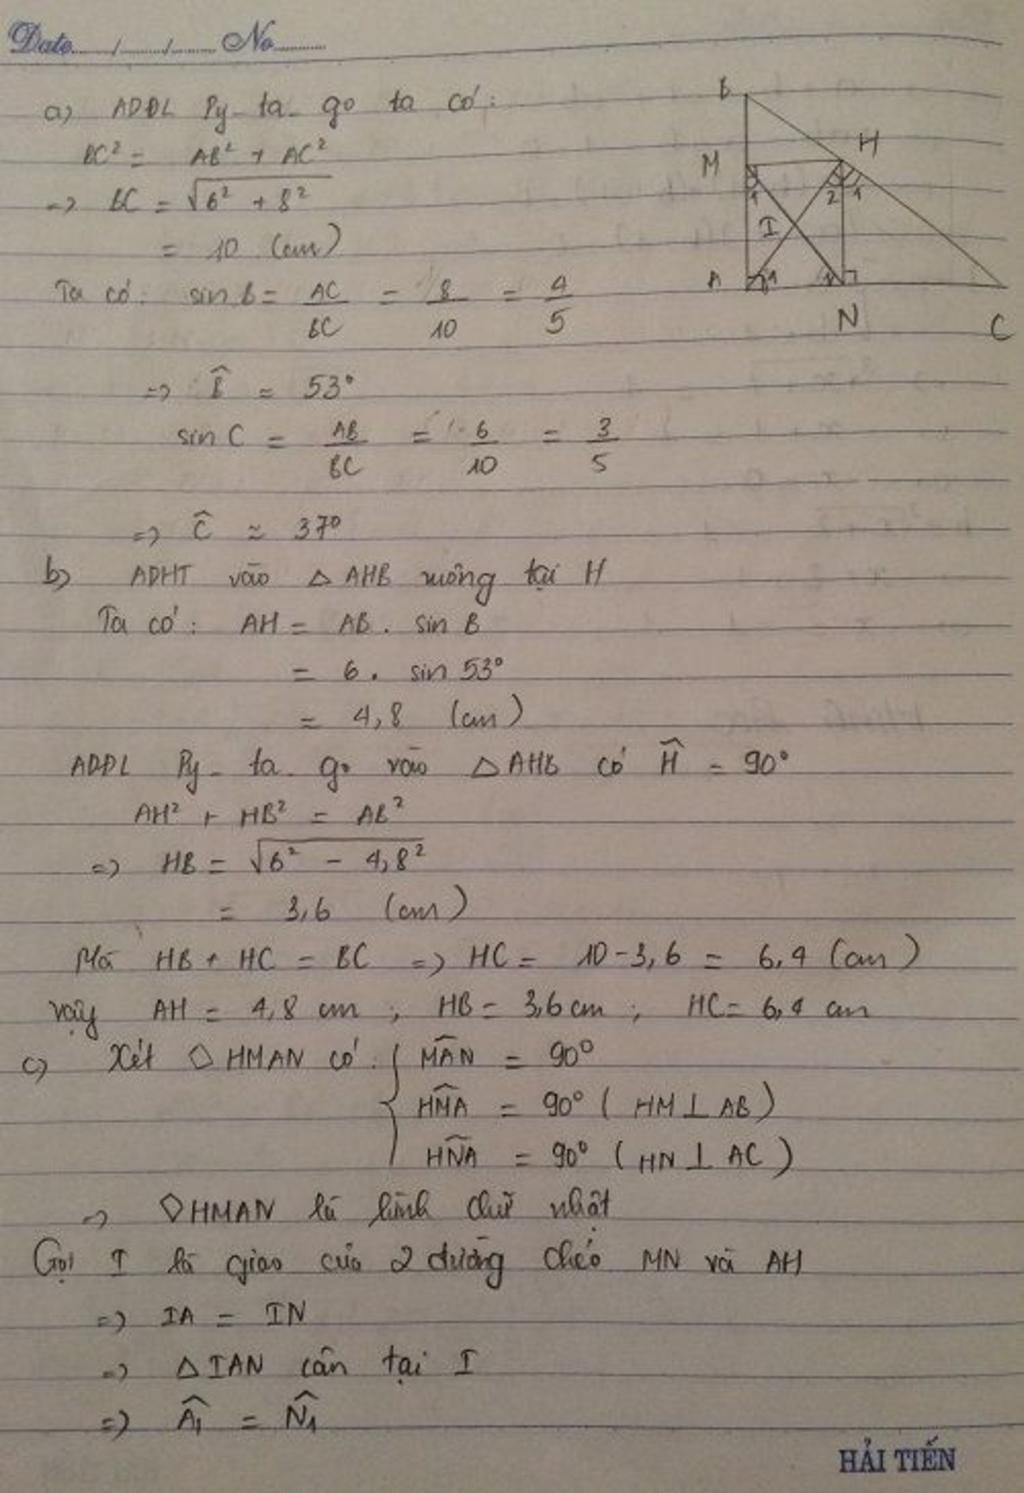 Date...../......./....... No..........
a) ADĐL Py-ta-go ta có:
BC² = AB² + AC²
=> BC = √(6² + 8²)
= 10 (cm)
Ta có: sin B = AC/BC = 8/10 = 4/5
=> B̂ = 53°
sin C = AB/BC = 6/10 = 3/5
=> Ĉ ≈ 37°
b) ADHT vào △ AHB vuông tại H
Ta có: AH = AB . sin B
= 6 . sin 53°
= 4,8 (cm)
ADĐL Py-ta-go vào △AHB có Ĥ = 90°
AH² + HB² = AB²
=> HB = √(6² - 4,8²)
= 3,6 (cm)
Mà HB + HC = BC => HC = 10-3,6 = 6,4 (cm)
vậy AH = 4,8 cm ; HB = 3,6 cm ; HC = 6,4 cm
c) Xét ◇ HMAN có: { MÂN = 90°
HM̂A = 90° ( HM ⊥ AB )
HN̂A = 90° ( HN ⊥ AC )
=> ◇HMAN là hình chữ nhật
Gọi I là giao của 2 đường chéo MN và AH
=> IA = IN
=> △IAN cân tại I
=> Â₁ = N̂₁
B
H
M
1
2 1
I
A 1 1
N
C
HẢI TIẾN